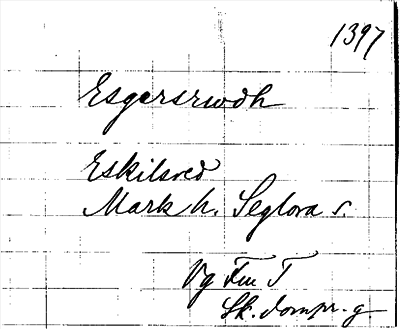 1397
Esgersrwdh
Eskilsred
Mark h. Seglora s.
Vg Fru T
Sk. dompr. g